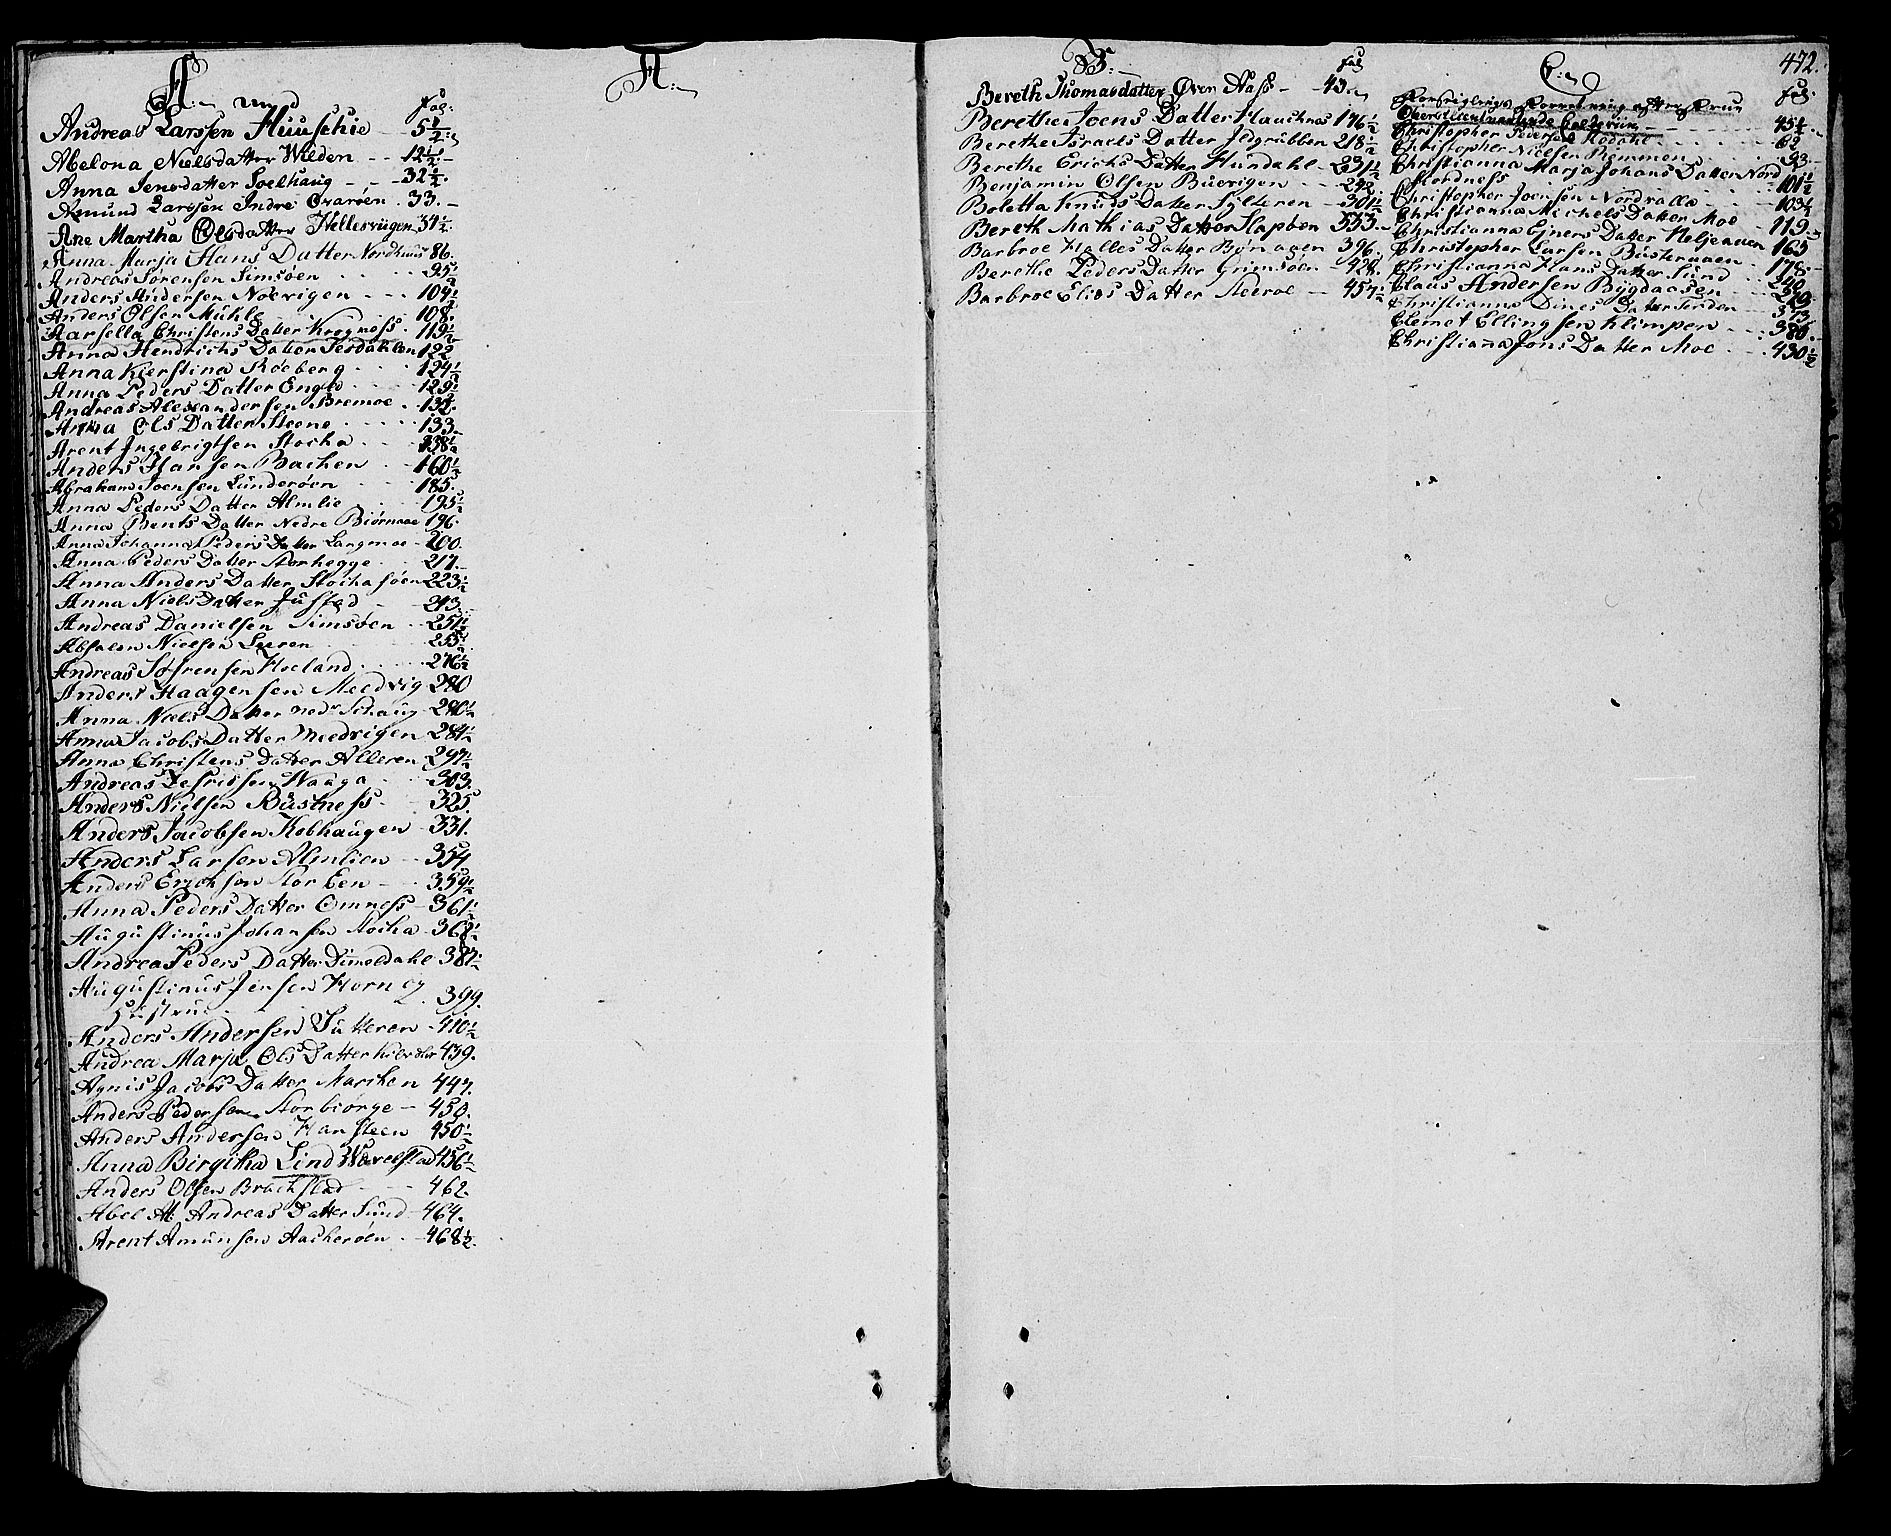 A:
fol:
Andreas Larssen Huuschie - 5 1/2
Abelona Nielsdatter Wilden - - 12 1/2
Anna Jensdatter Soelhaug - - 32 1/2
Amund Larssen Indre Qvarøen . 33.
Ane Martha Olsdatter Hellesvügen 34 1/2
Anna Marja Hans Datter Nordhuus 86.
Andreas Sørensen Simsøen 95 1/2
Anders Andersen Noevigen 104 1/2
Anders Olsen Mühle 108.
Marsella Christens Datter Krogness 119 1/2
Anna Hendrichs Datter Jesdahlen 122
Anna Kierstina Roeberg 124 1/2
Anna Peders Datter Enged 129 1/2
Andreas Alexandersen Bremoe 132.
Anna Ols Datter Steene 133
Arent Ingebrigtsen Stocka 138 1/2
Anders Hansen Bachen 160 1/2
Abraham Joensen Lünderøen 185.
Anna Peders Datter Almlie 195 1/2
Anna Bents Datter Nedre Biørnaae 196.
Anna Johanna Peders Datter Langmoe 200.
Anna Peders Datter Storhegge 217.
Anna Anders Datter Stochasøen 223 1/2
Anna Niels Datter Jüstad 243.
Andreas Danielsen Simsøen 251 1/2
Absalon Nielsen Leeren 255 1/2
Andreas Søfrensen Hoeland 276 1/2
Anders Haagensen Meedvig 280
Anna Niels Datter nedr Schaug 280 1/2
Anna Jacobs Datter Meedvigen 284 1/2
Anna Christens Datter Alleren 297 1/2
Andreas Zefridsen Waaga 303.
Anders Nielsen Büstness 325.
Anders Jacobsen Kobhaugen 331.
Anders Larsen Almlien 354
Anders Erichsen Storben 359 1/2
Anna Peders Datter Omness 361 1/2
Augustinus Johansen Stocka 368 1/2
Andrea Peders Datter Dimeldahl 387 1/2
Augustinus Jensen Horn og
Hustrue 399.
Anders Andersen Sütteren 410 1/2
Andrea Marja Ols Datter 439.
Agnis Jacobs Datter Marken 447.
Anders Pedersen Storbiørge 450.
Anders Andersen Hansteen 450 1/2
Anna Birgitha Lind Warelstad 456 1/2
Anders Olsen Brachstad 462.
Abel M: Andreas Datter Sund 464.
Arent Amunsen Aacherøen 468 1/2
A:
B:
fol
Bereth Thomasdatter Øvre Næss - 43.
Berethe Joens Datter Hauchnes 176 1/2
Berethe Israels Datter Ildgrubben 218 1/2
Berethe Erichs Datter Hundahl 231 1/2
Benjamin Olsen Buevigen 292.
Boletta Knuds Datter Sylteren 301 1/2
Bereth Mathias Datter Slapøen 353.
Barbroe Halles Datter Bønaaen 396.
Berethe Peders Datter Grimsøen 428.
Barbroe Elias Datter Steeroe 457 1/2
472.
C:
fol:
Oberstlieutnantinde Collerün 45 1/2
Christopher Pedersen Rødahl 62
Christopher Nielsen Remmen 93.
Christianna Marja Johans Datter Nord
Stordness 101 1/2
Christopher Joensen Nordvalla 103 1/2
Christianna Michels Datter Moe 119.
Christianna Ejners Datter Neljeaaen 165
Christopher Larsen Büsteraaen 178.
Christianna Hans Datter Lund 240
Claus Andersen Bÿgdaasen 279.
Christianna Dines Datter Forden 373.
Clemet Ellingsen Klimpen 386.
Christianna Jons Datter Moe 430 1/2